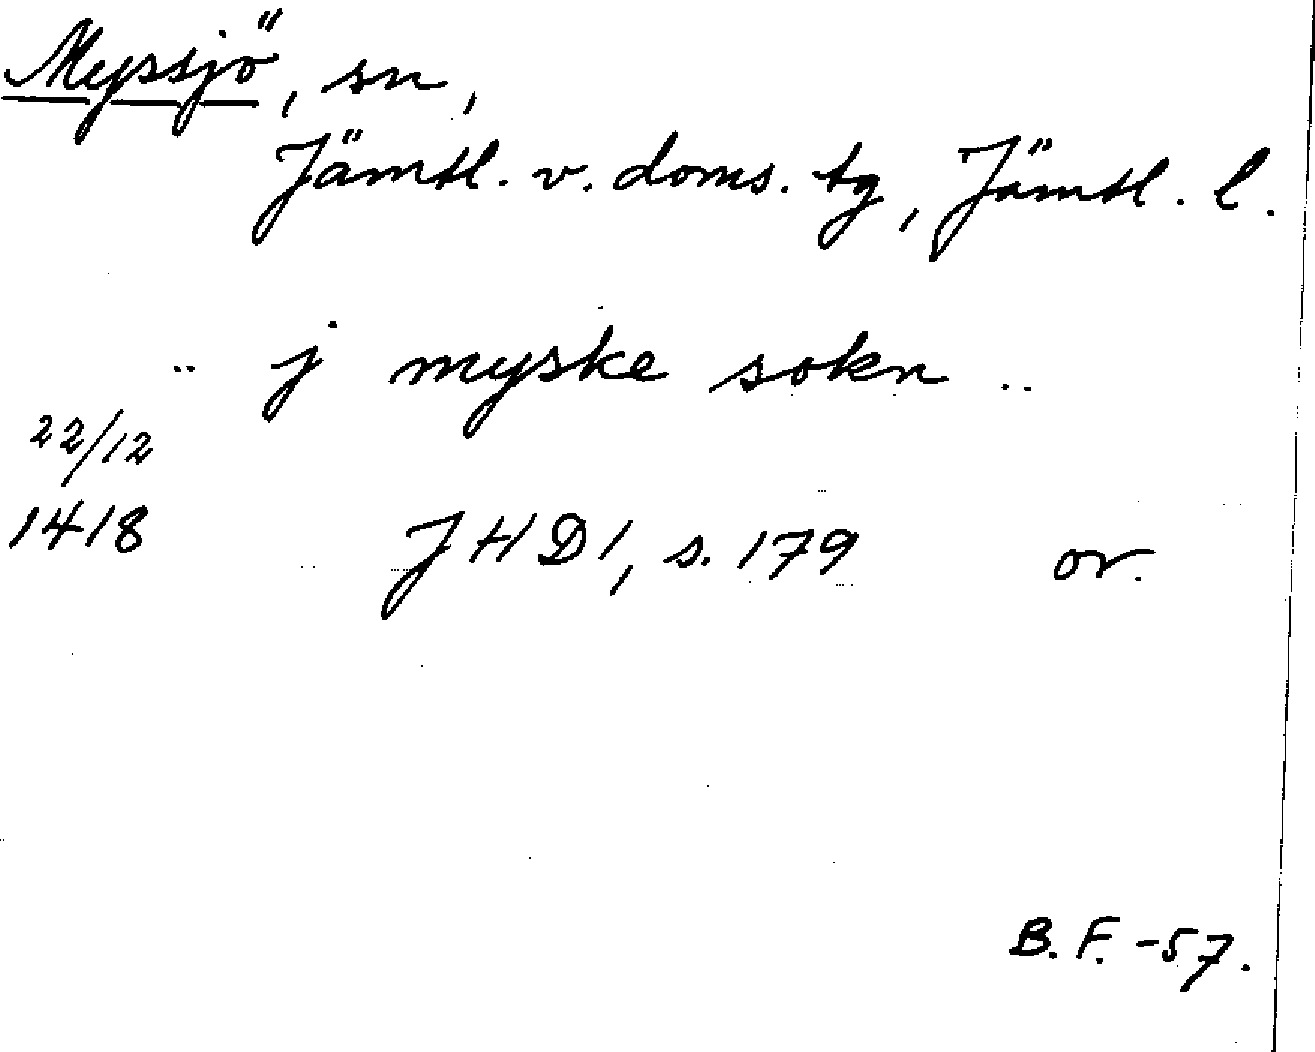 Myssjö, sn,
Jämtl. v. doms. tg, Jämtl. l.
.. j myske sokn ..
22/12
1418 JHD1, s. 179 or.
B. F. -57.